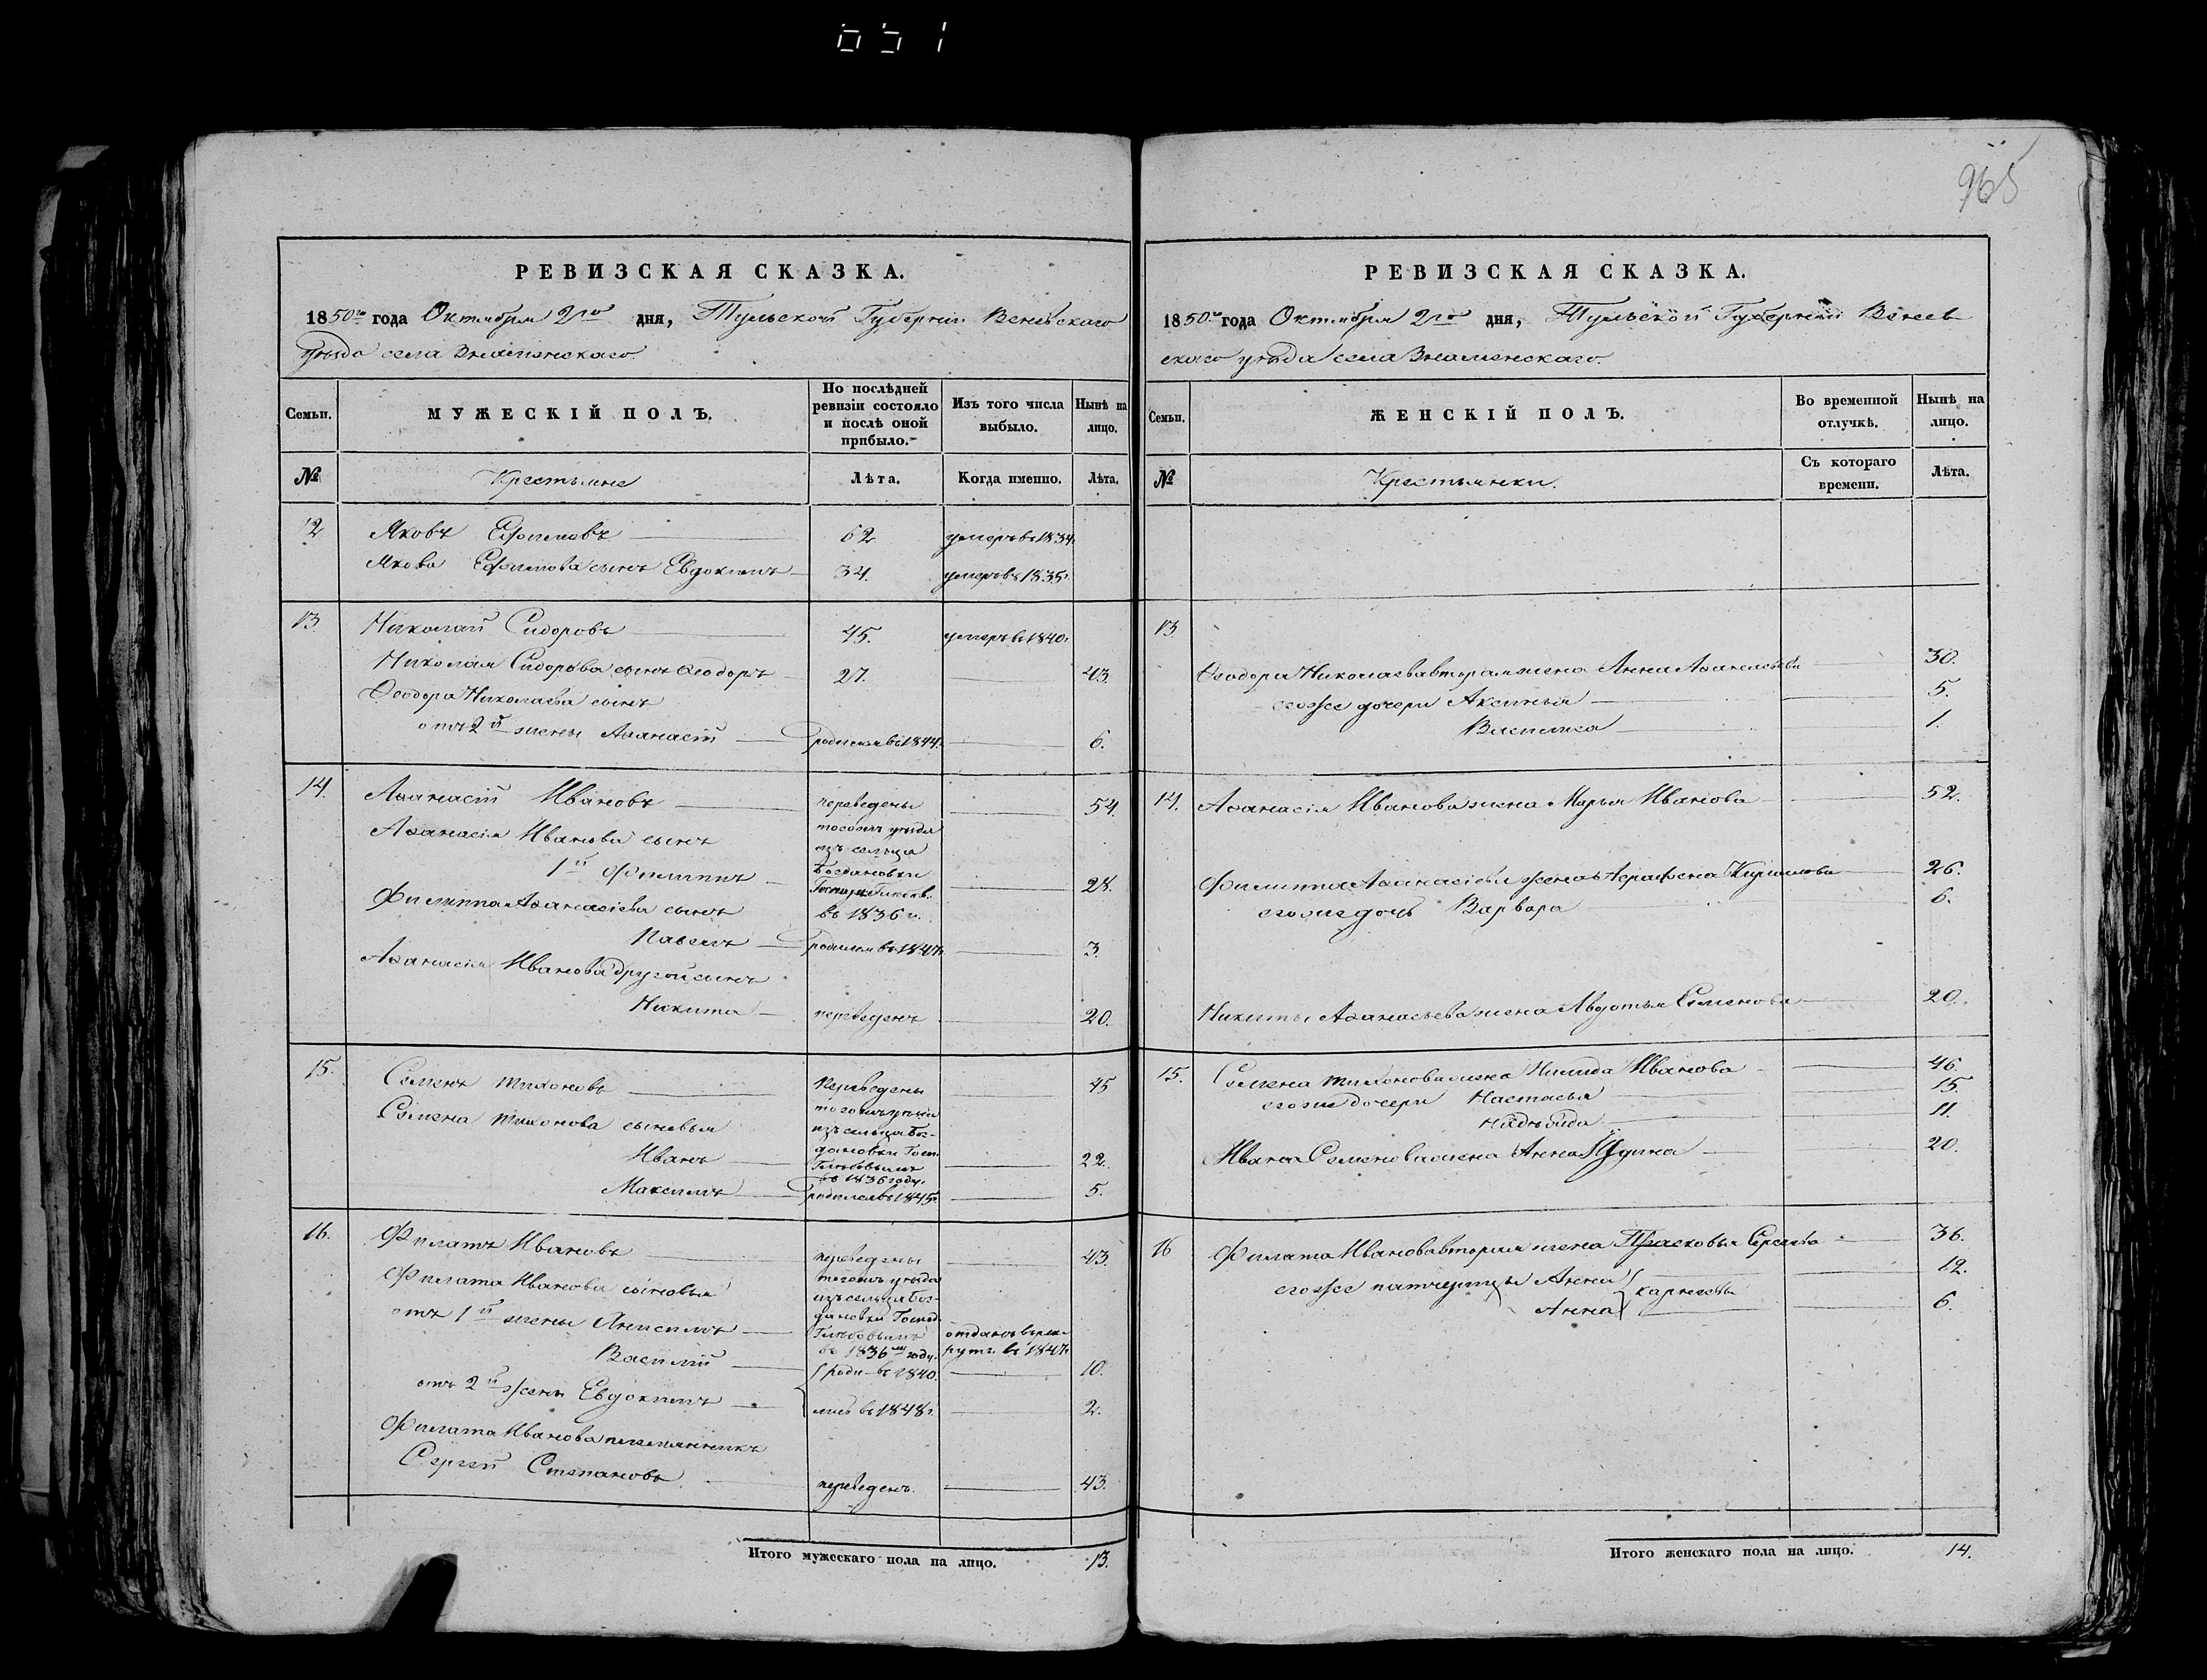 051
965
РЕВИЗСКАЯ СКАЗКА.
1850го года Октября 2го дня, Тульской Губерніи Веневскаго
уѣзда села Знаменскаго
Семьи.
МУЖЕСКІЙ ПОЛЪ.
По послѣдней
ревизіи состояло
и послѣ оной
прибыло.
Изъ того числа
выбыло.
Нынѣ на
лицо.
№
Крестьяне
Лѣта.
Когда именно.
Лѣта.
12 Яковъ Ефимовъ 62 умеръ въ 1834.
Якова Ефимова сынъ Евдокимъ 34. умеръ въ 1835г.
13. Николай Сидоровъ 45. умеръ въ 1840г
Николая Сидорова сынъ Ѳеодоръ 27. 43
Ѳеодора Николаева сынъ
отъ 2й жены Аѳанасій родился въ 1844. 6.
14. Аѳанасій Ивановъ переведены 54.
Аѳанасія Иванова сынъ тогожъ уѣзда
изъ сельца
1й Филиппъ Богдановки 28.
Филиппа Аѳанасіева сынъ въ 1836 г.
Павелъ родился въ 1847г 3.
Аѳанасія Иванова другой сынъ
Никита переведенъ 20.
15. Семенъ Тихоновъ переведены 45
Семена Тихонова сыновья тогожъ уѣзда
изъ сельца Бог-
дановки Госп.
Иванъ Глѣбовымъ 22.
въ 1836 году.
Максимъ родился въ 1845г. 5.
16. Филатъ Ивановъ переведены 43.
Филата Иванова сыновья тогожъ уѣзда
изъ сельца Бог-
дановки Господ.
отъ 1й жены Анисимъ Глѣбовымъ отданъ въ рек-
въ 1836мъ году. руты въ 1847г
Василій роди- въ 1840. 10.
отъ 2й жены Евдокимъ лись въ 1848г. 2.
Филата Иванова племянникъ
Сергей Степановъ переведенъ. 43.
Итого мужескаго пола на лицо. 13.
РЕВИЗСКАЯ СКАЗКА.
1850го года Октября 2го дня, Тульской Губерніи Венев-
скаго уѣзда села Знаменскаго.
Семьи.
ЖЕНСКІЙ ПОЛЪ.
Во временной
отлучкѣ.
Нынѣ на
лицо.
№
Крестьянки.
Съ котораго
времени.
Лѣта.
13
Ѳеодора Николаева вторая жена Анна Аѳанасьева 30.
егоже дочери Аксинья 5.
Василиса 1.
14. Аѳанасія Иванова жена Марья Иванова 52.
Филиппа Аѳанасіева жена Аграфена Кирилова 26.
егоже дочь Варвара 6.
Никиты Аѳанасьева жена Авдотья Семенова 20.
15. Семена Тихонова жена Иванова 46.
егоже дочери Настасья 15.
Надежда 11.
Ивана Семенова жена Анна 20.
16 Филата Иванова вторая жена Прасковья Сергеева 36.
егоже патчерицы Анна 12.
Карнеевы
Анна 6.
Итого женскаго пола на лицо. 14.